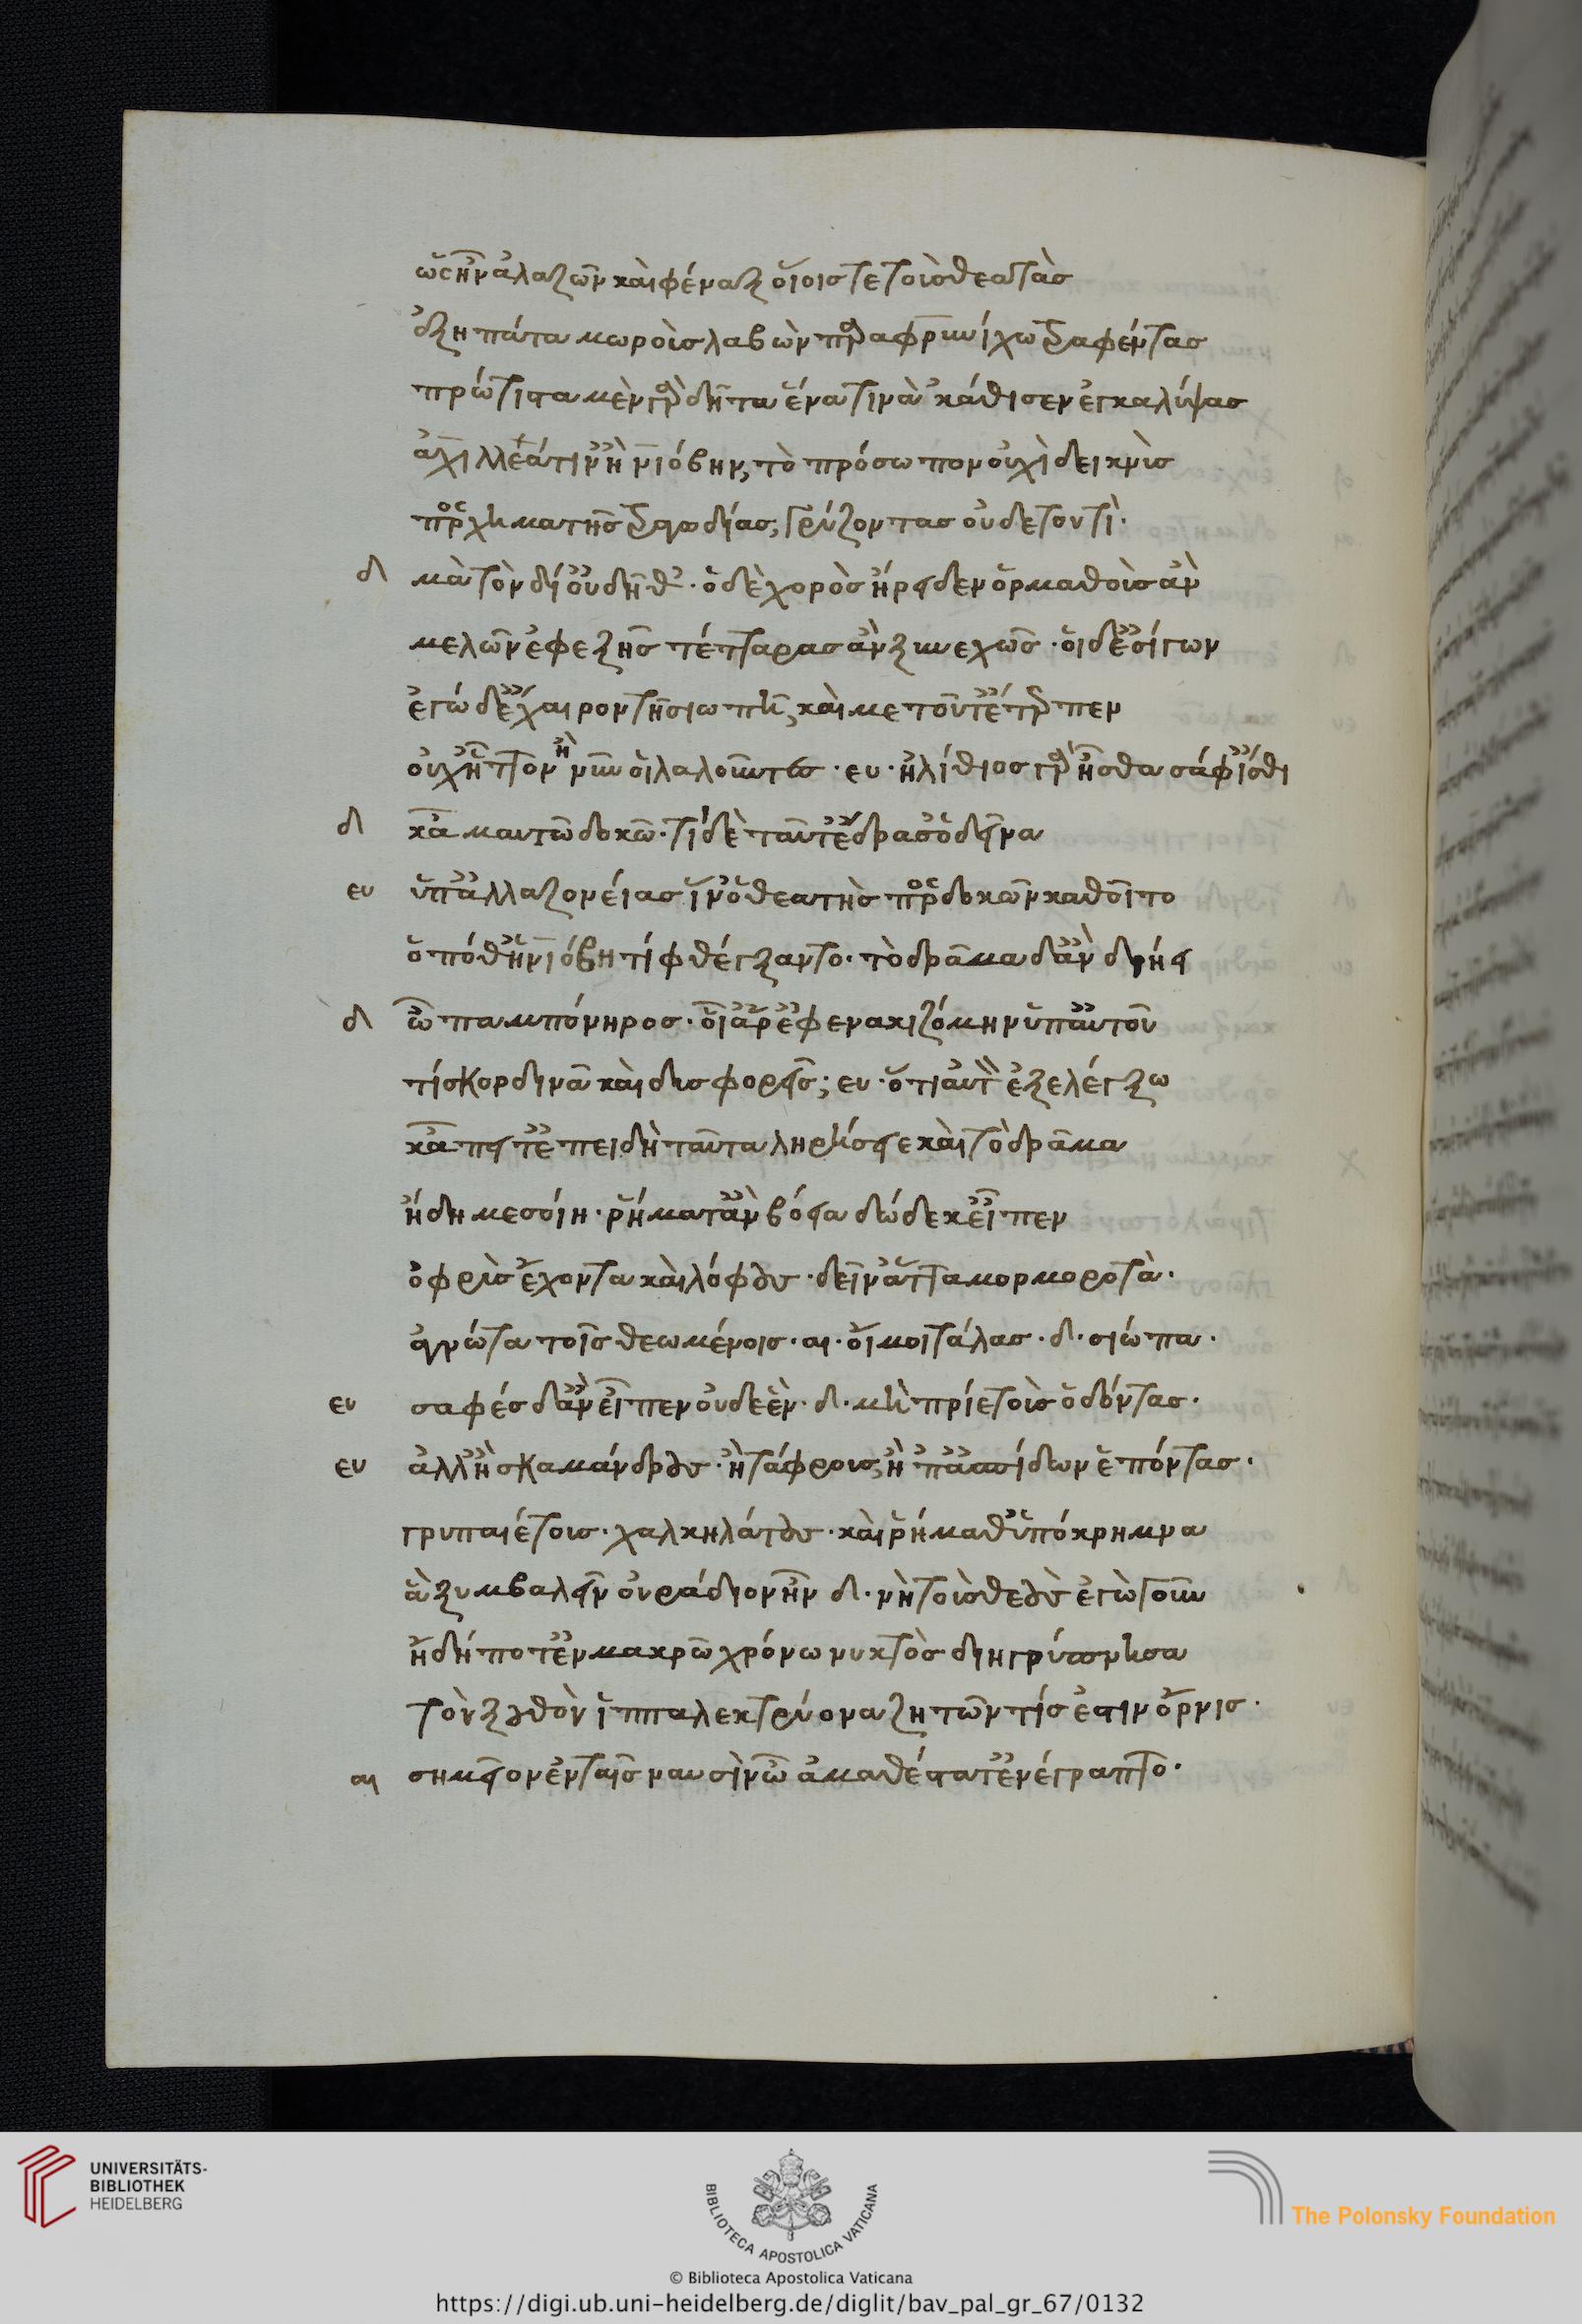 ὡς ἦν ἀλαζὼν καὶ φέναξ οἵοις τε τοὺς θεατὰς
ἐξηπάτα μωροὺς λαβὼν παρὰ φρυνίχω τραφέντας
πρώτιστα μὲν γὰρ δῆτα ἕνα τινὰ ἐκάθισεν ἐγκαλύψας
ἀχιλλέά τιν' ἢ νιόβην, τὸ πρόσωπον οὐχὶ δεικνὺς
πρόσχημα τῆς τραγωδίας, γρύζοντας οὐδε τουτί·
δ μὰ τὸν δί' οὐ δῆθ'· ὁ δὲ χορὸς ἤρειδεν ὁρμαθοὺς ἂν
μελῶν ἐφεξῆς τέτταρας ἂν ξυνεχῶς· οἱ δ' ἐσίγων
ἐγώ δ' ἔχαιρον τῆ σιωπῆ, καί με τοῦτ' ἔτερπεν
οὐχ ἧττον ἢ νῦν οἱ λαλοῦντες· ευ· ἠλίθιος γάρ ἦσθα σάφ' ἴσθι
δ κἀμαυτῶ δοκῶ· τί δὲ ταῦτ' ἔδρασ' ὁ δεῖνα
ευ ὑπ' ἀλλαζονείας ἵν' ὁ θεατὴς προσδοκῶν καθοῖτο
ὁπόθ' ἡ νιόβη τί φθέγξαντο· τὸ δρᾶμα δ' ἂν διήει
δ ὢ παμπόνηρος· οἷ' ἄρ' ἐφενακιζόμην ὑπ' αὐτοῦ
τί σκορδινᾶ καὶ δυσφορεῖς; ευ· ὅτι αὐτ' ἐξελέγξω
κἄπειτ' ἐπειδὴ ταῦτα ληρήσειε καὶ τὸ δρᾶμα
ἤδη μεσοίη· ῥήματ' ἂν βόεια δώδεκ' εἶπεν
ὀφρὺς ἔχοντα καὶ λόφους· δεῖν' ἄττα μορμορωπὰ·
ἀγνώτα τοῖς θεωμένοις· αι· οἴμοι τάλας· δ· σιώπα·
ευ σαφές δ' ἂν εἶπεν οὐδε ἓν· δ· μὴ πρίε τοὺς ὀδόντας·
ευ ἀλλ' ἢ σκαμάνδρους· ἢ τάφρους, ἢ 'π' ἀσπίδων ἐπόντας·
γρυπαιέτους· χαλκηλάτους· καὶ ῥήμαθ' ὑπόκρημνα
ἃ ξυμβαλεῖν οὐ ράδιον ἦν δ· νὴ τοὺς θεοὺς ἐγὼ γοῦν
ἤδή ποτ' ἐν μακρῶ χρόνω νυκτὸς διηγρύπνησα
τὸν ξουθὸν ἱππαλεκτρύονα ζητῶν τίς ἐστιν ὄρνις·
αι σημεῖον ἐν ταῖς ναυσὶν ὦ ἀμαθέστατ' ἐνέγραπτο·
UNIVERSITÄTS-
BIBLIOTHEK
HEIDELBERG
BIBLIOTECA APOSTOLICA VATICANA
The Polonsky Foundation
© Biblioteca Apostolica Vaticana
https://digi.ub.uni-heidelberg.de/diglit/bav_pal_gr_67/0132